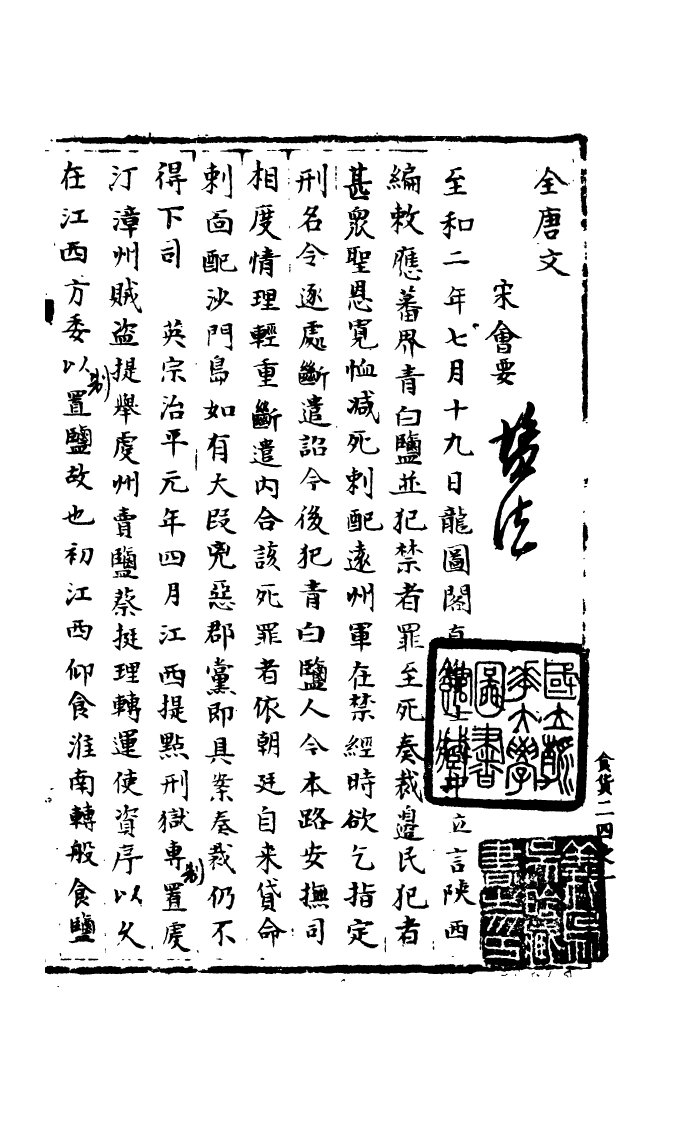 全唐文
宋會要
鹽法
至和二年七月十九日龍圖閣直學士立言陝西
編敕應蕃界青白鹽並犯禁者罪至死奏裁邊民犯者
甚衆聖恩寬恤減死刺配遠州軍在禁經時欲乞指定
刑名令逐處斷遣詔今後犯青白鹽人令本路安撫司
相度情理輕重斷遣內合該死罪者依朝廷自來貸命
刺面配沙門島如有大段兇惡郡黨即具案奏裁仍不
得下司 英宗治平元年四月江西提點刑獄專置虔
制
汀漳州賊盗提舉虔州賣鹽蔡挺理轉運使資序以久
在江西方委以置鹽故也初江西仰食淮南轉般食鹽
制
食貨二四之一
國立
大學
圖書